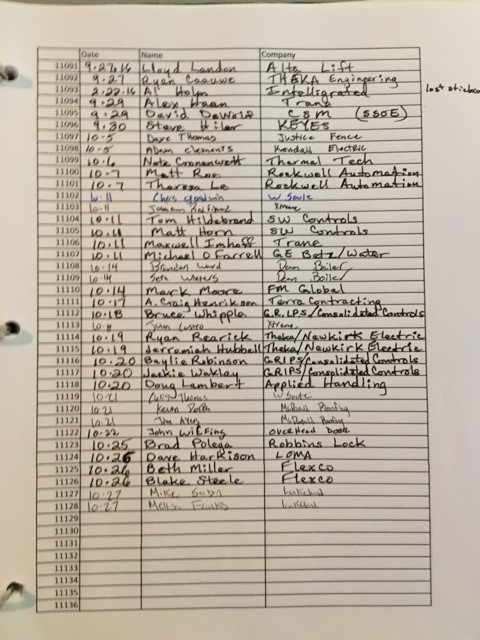 Date Name Company
11091 9.27.16 Lloyd Landon Alta Lift
11092 9.27 Ryan THEKA Engineering
11093 2.22.16 Al Holm Intelligrated lost sticker
11094 9.29 Alex Haan Trane
11095 9.29 David DeWeld CSM (SSOE)
11096 9.30 Steve Hiler KEYES
11097 10-5 Dave Thomas Justice Fence
11098 10-5 Adam Clements Kendall Electric
11099 10.6 Nate Cronenwett Thermal Tech
11100 10.7 Matt Roe Rockwell Automation
11101 10.7 Theresa Le Rockwell Automation
11102 10.11 Chris Goodwin W. Soule
11103 10.11 Xtreme
11104 10.11 Tom Hildebrand SW Controls
11105 10.11 Matt Horn SW Controls
11106 10.11 Maxwell Imhoff Trane
11107 10.11 Michael O'Farrell GE Betz/Water
11108 10.14 Brandon Ward Dan Boiler
11109 10.14 Seth Dan Boiler
11110 10.14 Mark Moore FM Global
11112 10.17 A. Craig Henrikson Terra Contracting
11112 10.18 Bruce Whipple G.R.I.P.S/Consolidated Controls
11113 10.18 Juan Castro Xtreme
11114 10.19 Ryan Rearick Theka/Newkirk Electric
11116 10.19 Jerremiah Hubbell Theka/Newkirk Electric
11116 10.20 Baylie Robinson GRIPS/Consolidated Controls
11117 10.20 Jackie Waklay GRIPS/Consolidated Controls
11118 10.20 Doug Lambert Applied Handling
11119 10.21 Thomas W Soule
11120 10.21 Kevin
11121 10.21 Jim
11122 10.22 John Wilfing Overhead Door
11123 10.25 Brad Polega Robbins Lock
11124 10.26 Dave Harrison LOMA
11125 10.26 Beth Miller Flexco
11126 10.26 Blake Steele Flexco
11127 10.27 Mike
11128 10.27
11129
11130
11131
11132
11133
11134
11135
11136